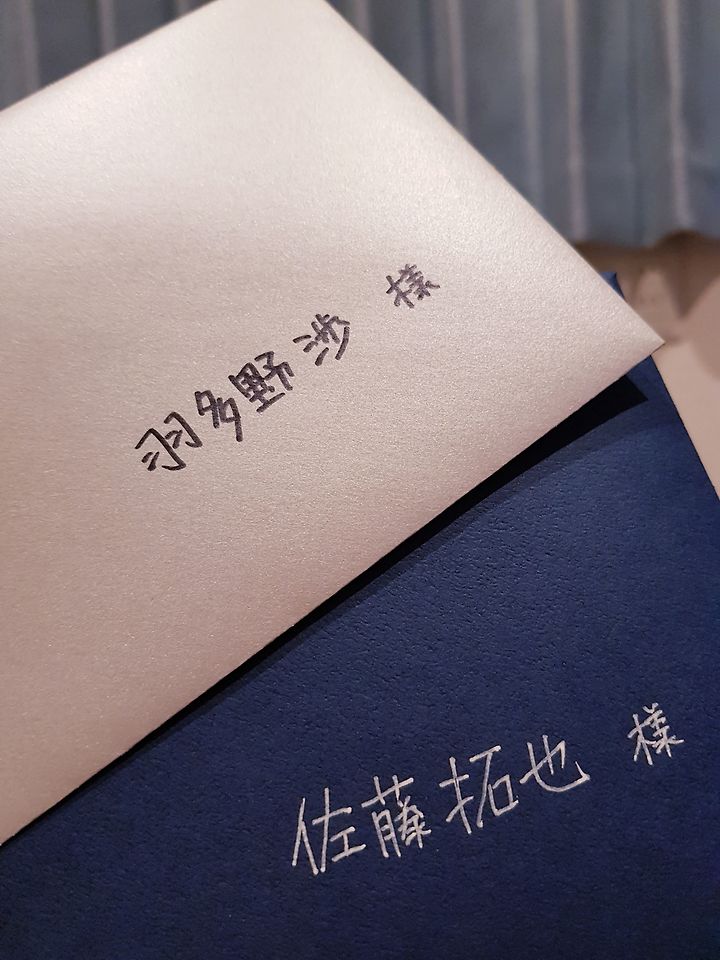 羽多野渉 様
佐藤拓也 様